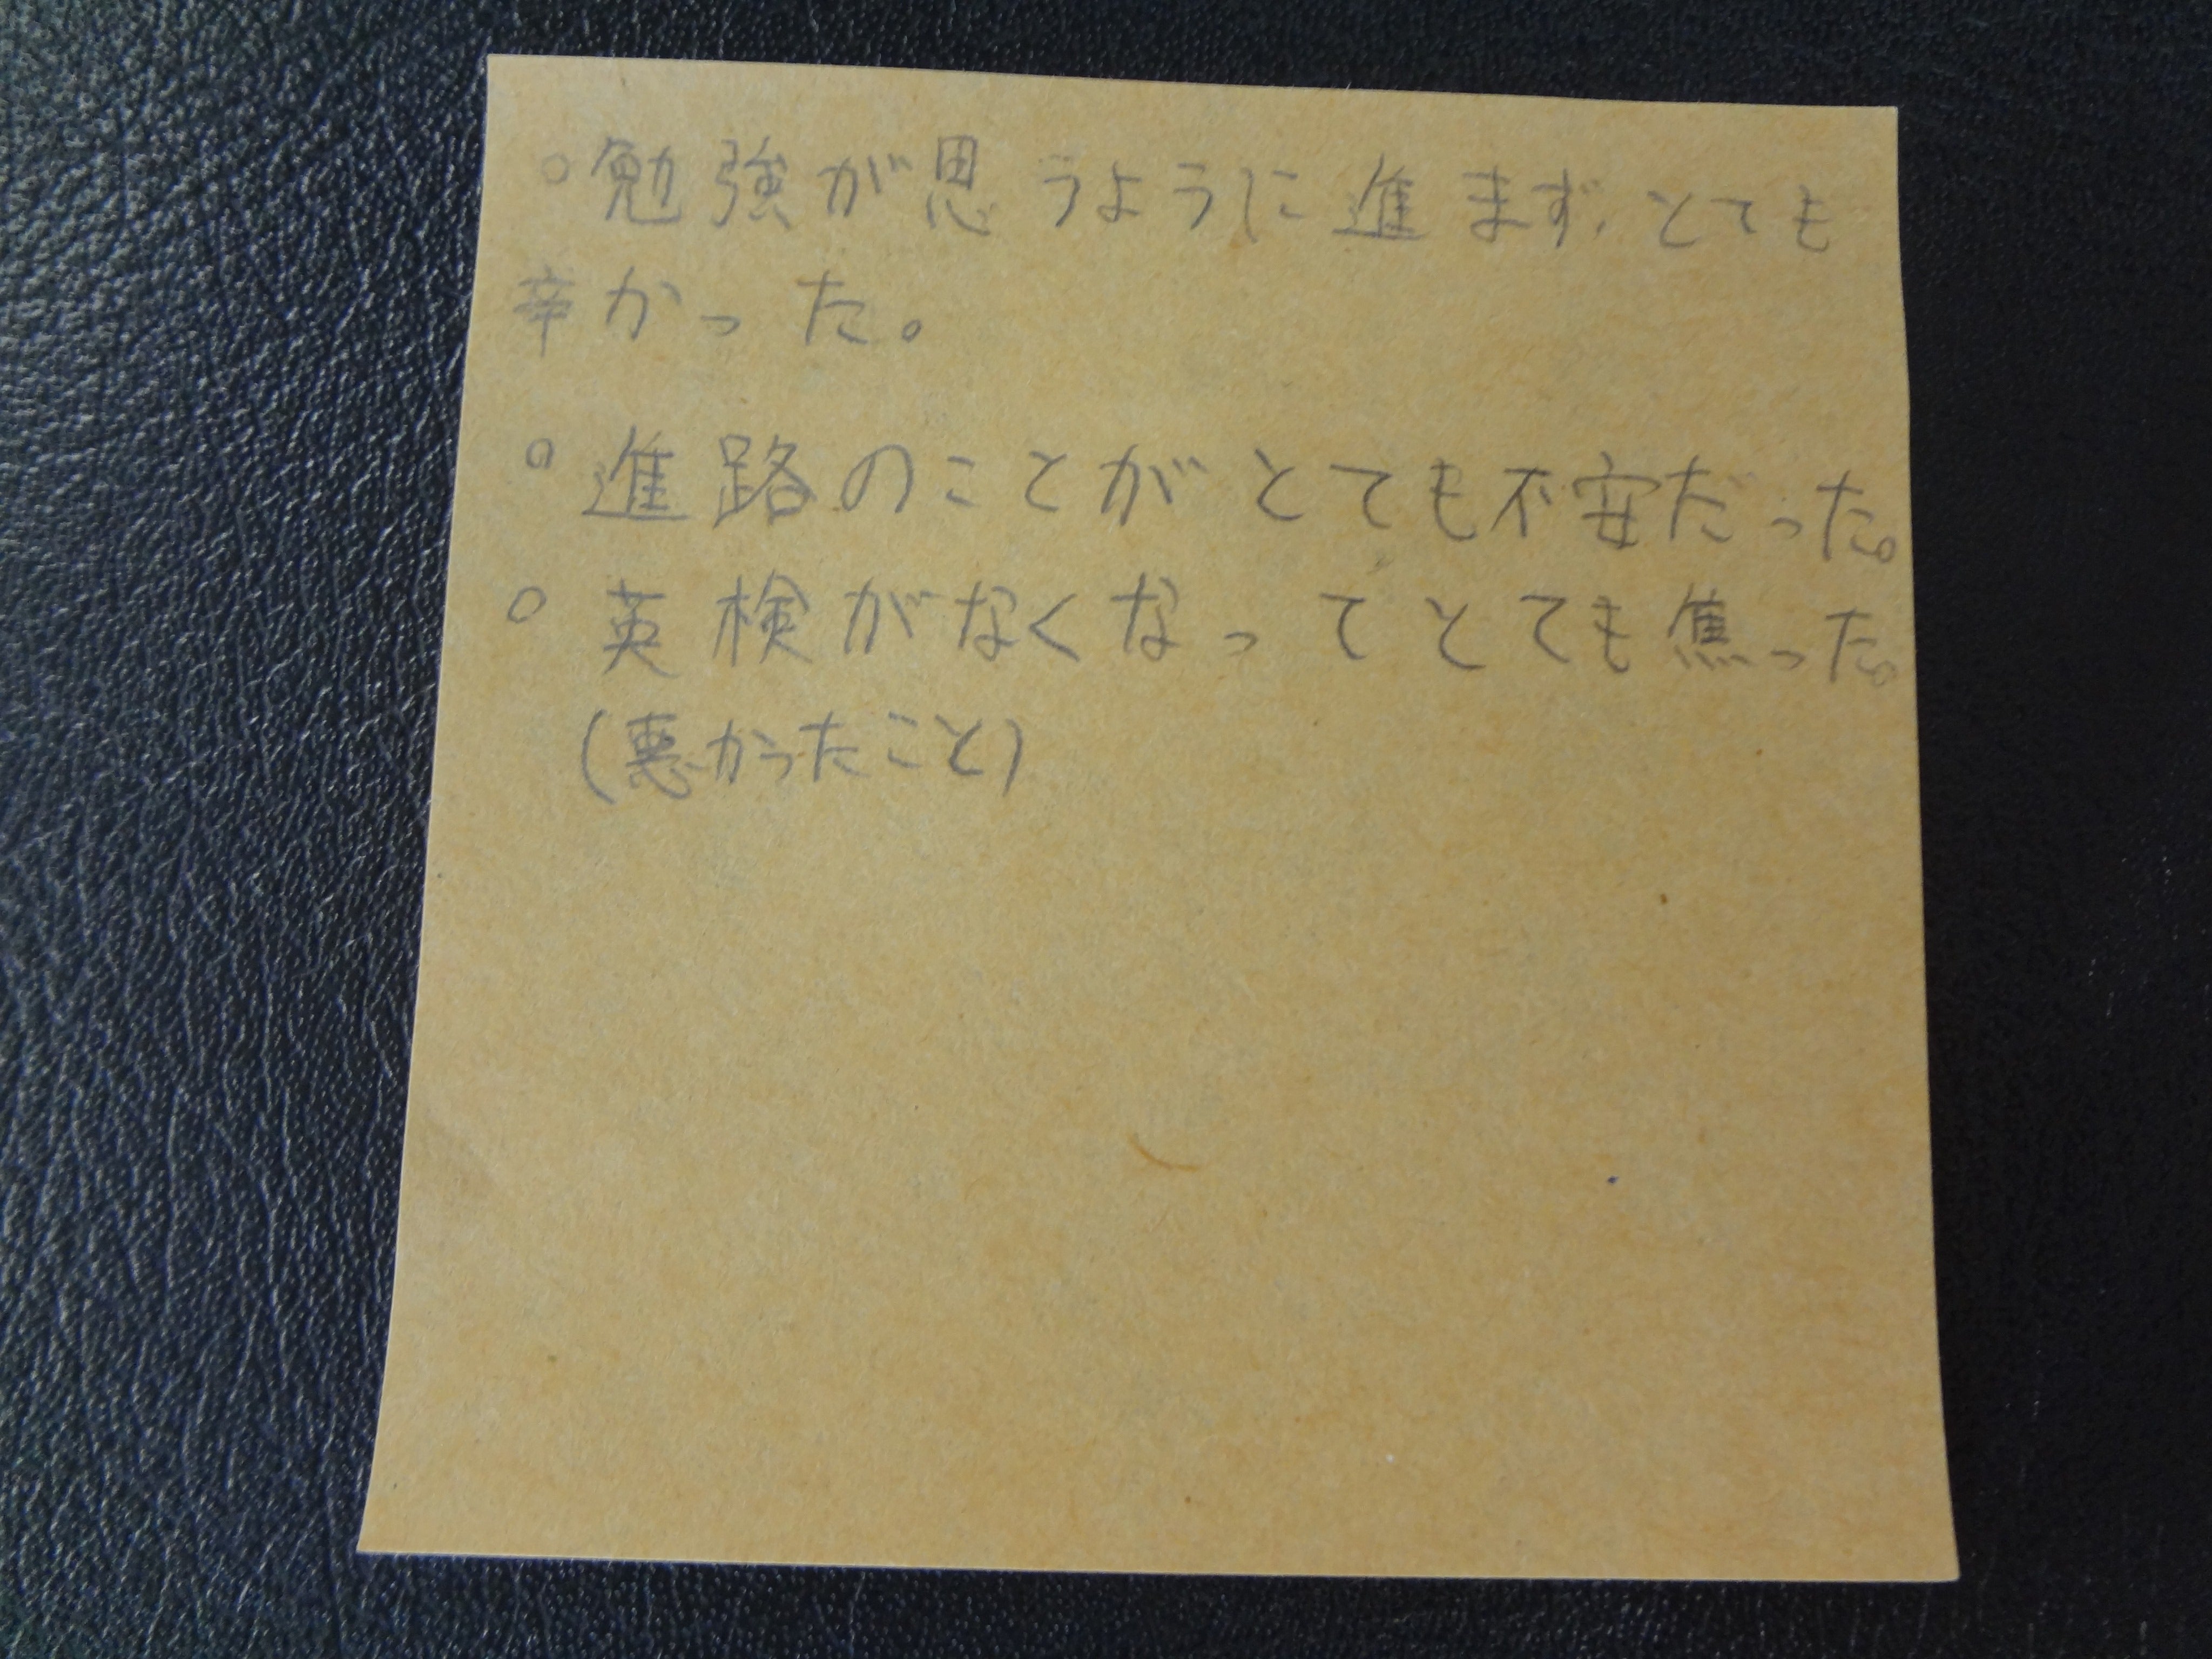 ○勉強が思うように進まず、とても
辛かった。
○進路のことがとても不安だった。
○英検がなくなってとても焦った。
(悪かったこと)